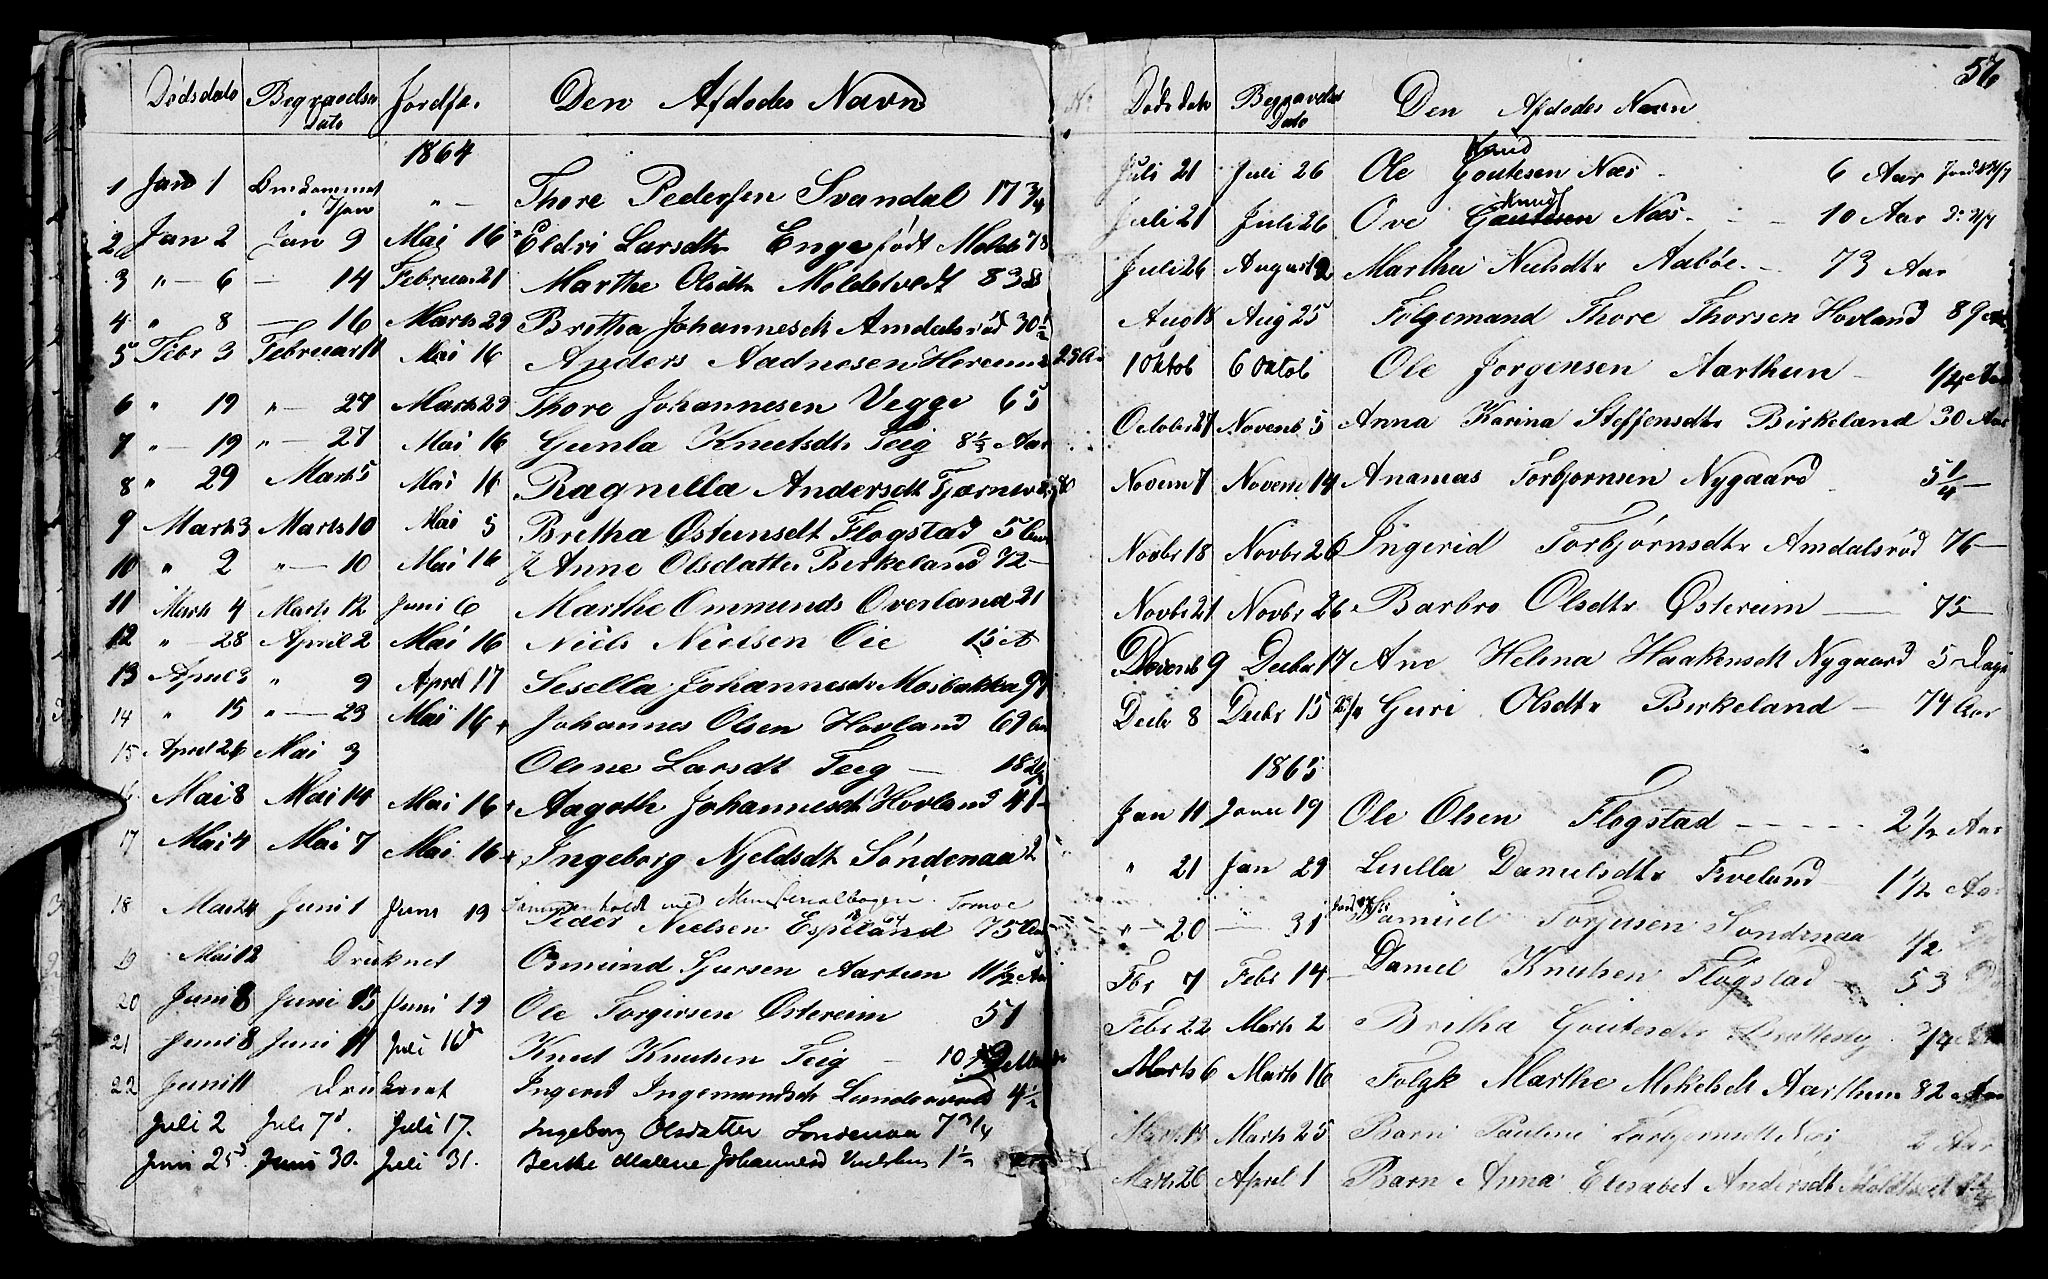 Dødsdato Begravelses Dato Jordfæ. Den Afdødes Navn
1864
1 Jan 1 Omkommet 7 Jan " — Thore Pedersen Svandal 17 3/4
2 Jan 2 Jan 9 Mai 16 Eldri Larsdtr Enge født Molde 78
3 " — 6 — 14 Februar 21 Marthe Olsdtr Moldetvedt 83
4 " 8 — 16 Marts 29 Britha Johannesdt Amdalsrød 30 1/2
5 Febr 3 Februar 11 Mai 16 Anders Aadnesen Hereim 23 A
6 " 19 " — 27 Marts 29 Thore Johannesen Vegge 65
7 " — 19 " — 27 Mai 16 Gunla Knutsdtr Teig 8 1/2 Aar
8 " 29 Marts 5 Mai 16 Ragnilla Andersdt
9 Marts 3 Marts 10 Mai 5 Britha Østensdt Flogstad 5
10 " 2 " — 10 Mai 16 Anne Olsdatter Birkeland 72 —
11 Marts 4 Marts 12 Juni 6 Marthe Ommunds Overland 21
12 " — 28 April 2 Mai 16 Niels Nielsen Oie 15 A
13 April 3 " 9 April 17 Sesella Johannesdtr Mosbakka
14 " 15 " — 23 Mai 16 Johannes Olsen Hovland 69
15 April 26 Mai 3 Oline Larsdt Teig — 18
Mai 8 Mai 14 Mai 16 Aagothe Johannesdt Hovland 41
17 Mai 4 Mai 7 Mai 16 Ingeborg Njeldsdt Søndenaa 2
Sammenholdt med Ministerialbogen
18 Mai 24 Juni 1 Juni 19 Peder Nielsen Espeland 75
19 Mai 12 Druknet Ommund Sjursen Aartun 11 1/2
20 Juni 8 Juni 15 Juni 19 Ole Torgersen Østereim 51
21 Juni 8 Juni 11 Juli 16 Knut Knutsen Teig — 10
22 Juni 11 Druknet Ingerid Ingemundsdt 4 1/2
Juli 2 Juli 7d. Juli 17. Ingeborg Olsdatter Sondenaa 7 3/4
Juni 25d Juni 30. Juli 31. Berthe Malene Johannesd 1 1/2
56
Døds dato Begravelses Dato Den Afdødes Navn
Knud
Juli 21 Juli 26 Ole Goutesen Næs — 6 Aar
Knuds
Juli 21 Juli 26 Ove Goutesen Næs — 10 Aar
Juli 26 August 2 Martha Nielsdtr Aabøe — 73 Aar
Aug 18 Aug 25 Folgemand Thore Thorsen Hovland 89
1 Oktob 6 Oktob Ole Jorgensen Aarthun — 1/4
October 27 Novemb 5 Anna Karina Steffensdtr Birkeland 30 Aar
Novem 7 Novem 14 Ananias Torbjornsen Nygaard 5 1/4 —
Novbr 18 Novbr 26 Ingerid Torbjørnsdtr Amdalsrød 76 —
Novbr 21 Novbr 26 Barbro Olsdtr Østereim — 75 —
9 Decbr 17 Ane Helena Haakensdt Nygaard 5 Dage
Decbr 8 Decbr 15 Guri Olsdtr Birkeland — 74 Aar
1865
Jan 11 Janu 19 Ole Olsen Flogstad — 2 1/2 Aar
" 21 Jan 29 Sesella Danielsdtr Fiveland 1 1/2 Aar
" — 20 — 31 Samuel Torjusen Sondenaa 1/2
Fbr 7 Febr 14 — Daniel Knutsen Flogstad — 53
Febr 22 Marts 2 Britha Goutesdtr 3/4
Marts 6 Marts 16 Folgk Marthe Mikelsdt Aarthun 82 Aar
Marts 25 Barn Pauline 2 Aar
Marts 26 April 1 Barn Anna Elisabet Andersdt Moldtvedt